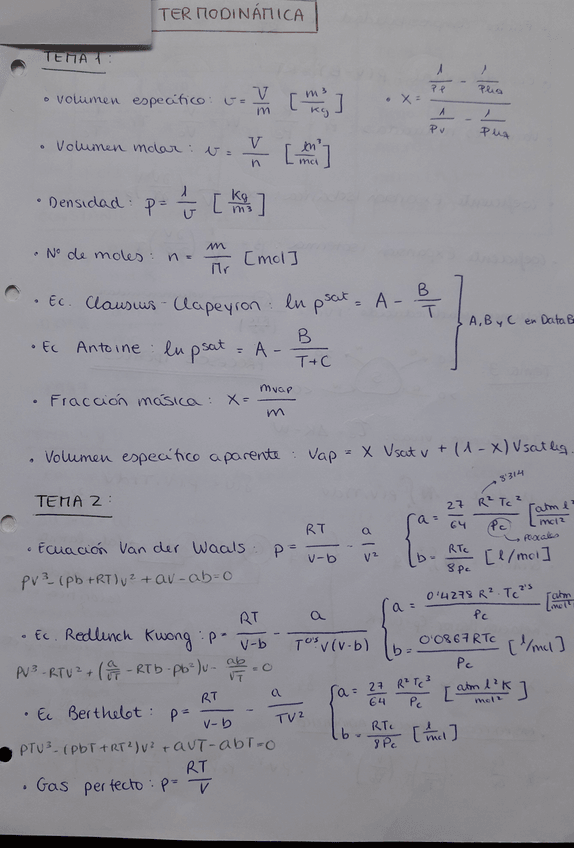 TERMODINÁMICA
TEMA 1:
• Volumen específico: v = V/m [m³/Kg]
• X = (1/ρp - 1/ρliq) / (1/ρv - 1/ρliq)
• Volumen molar: v = V/n [m³/mol]
• Densidad: ρ = 1/v [Kg/m³]
• Nº de moles: n = m/Mr [mol]
• Ec. Clausius-Clapeyron: ln p^sat = A - B/T
• Ec Antoine: ln p^sat = A - B/(T+C)
A, B y C en DataB
• Fracción másica: X = mvap/m
• Volumen específico aparente: Vap = X Vsat v + (1-X) Vsat liq.
TEMA 2:
8'314
• Ecuación Van der Waals: p = RT/(V-b) - a/V² { a = 27/64 R² Tc²/Pc [atm l²/mol²]
b = RTc/8Pc [l/mol]
PV³-(Pb+RT)V²+aV-ab=0
• Ec. Redlinch Kwong: p = RT/(V-b) - a/(T^0'5 V(V-b)) { a = 0'4278 R² · Tc^2'5/Pc [atm
b = 0'0867RTc/Pc [l/mol]
PV³-RTV²+(a/√T - RTb-pb²)V - ab/√T = 0
• Ec Berthelot: p = RT/(V-b) - a/TV² { a = 27/64 R² Tc³/Pc [atm l² K/mol²]
b = RTc/8Pc [l/mol]
PTV³-(PbT+RT²)V²+aVT-abT=0
• Gas perfecto: p = RT/V